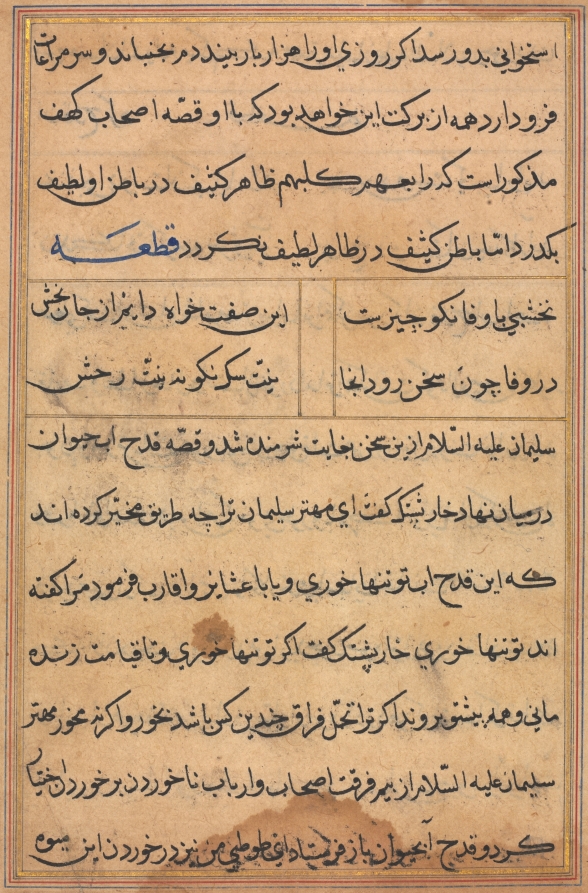 استخوانی بدو رسد اکر روزی او را هزار بار بیند دم بجنباند و سر مراعات
فرو دارد همه از برکت این خواهد بود که با او قصّه اصحاب کهف
مذکور است که رابعهم کلبهم ظاهر کثیف در باطن او لطیف
بکدرد امّا باطن کثیف در ظاهر لطیف نکردد قطعه
نخشبی با وفا نکو چیزیست این صفت خواه دایم از جان بخش
در وفا چون سخن رود انجا نیّت سک نکو نه نیّت رخش
سلیمان علیه السّلام ازین سخن بغایت شرمنده شد و قصّه قدح اب حیوان
در میان نهاد خارپشتک کفت ای مهتر سلیمان ترا چه طریق مخیّر کرده اند
که این قدح اب تو تنها خوری و یا با عشایر و اقارب فرمود مرا کفته
اند تو تنها خوری خارپشتک کفت اکر تو تنها خوری و تا قیامت زنده
مانی و همه پیشتو بروند اکر ترا تحمّل فراق چندین کس باشد بخور و اکر نه مخور مهتر
سلیمان علیه السّلام از بیم فرقت اصحاب و ارباب ناخوردن بر خوردن اختیار
کرد و قدح آبحیوان باز فرستاد ای طوطی من نیز در خوردن این میوه